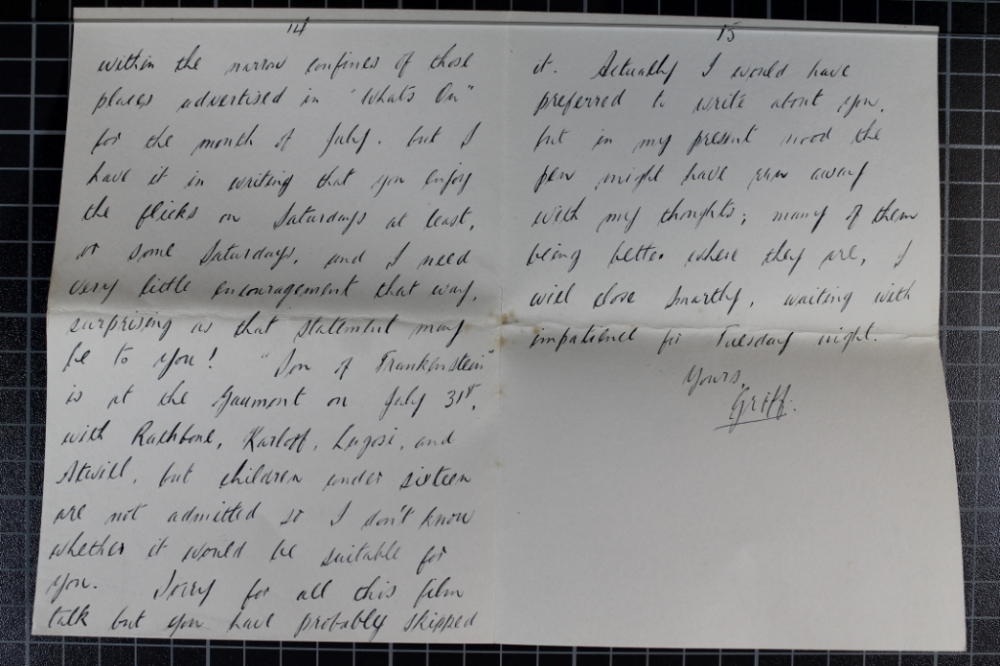 14
within the narrow confines of those
places advertised in "What's On"
for the month of July. but I
have it in writing that you enjoy
the flicks on Saturdays at least,
or some Saturdays, and I need
very little encouragement that way,
surprising as that statement may
be to you! "Son of Frankenstein"
is at the Gaumont on July 31st,
with Rathbone, Karloff, Lugosi, and
Atwill, but children under sixteen
are not admitted so I don't know
whether it would be suitable for
you. Sorry for all this film
talk but you have probably skipped
15
it. Actually I would have
preferred to write about you,
but in my present mood the
pen might have ran away
with my thoughts; many of them
being better where they are, I
will close smartly, waiting with
impatience for Tuesday night.
Yours,
Griff.